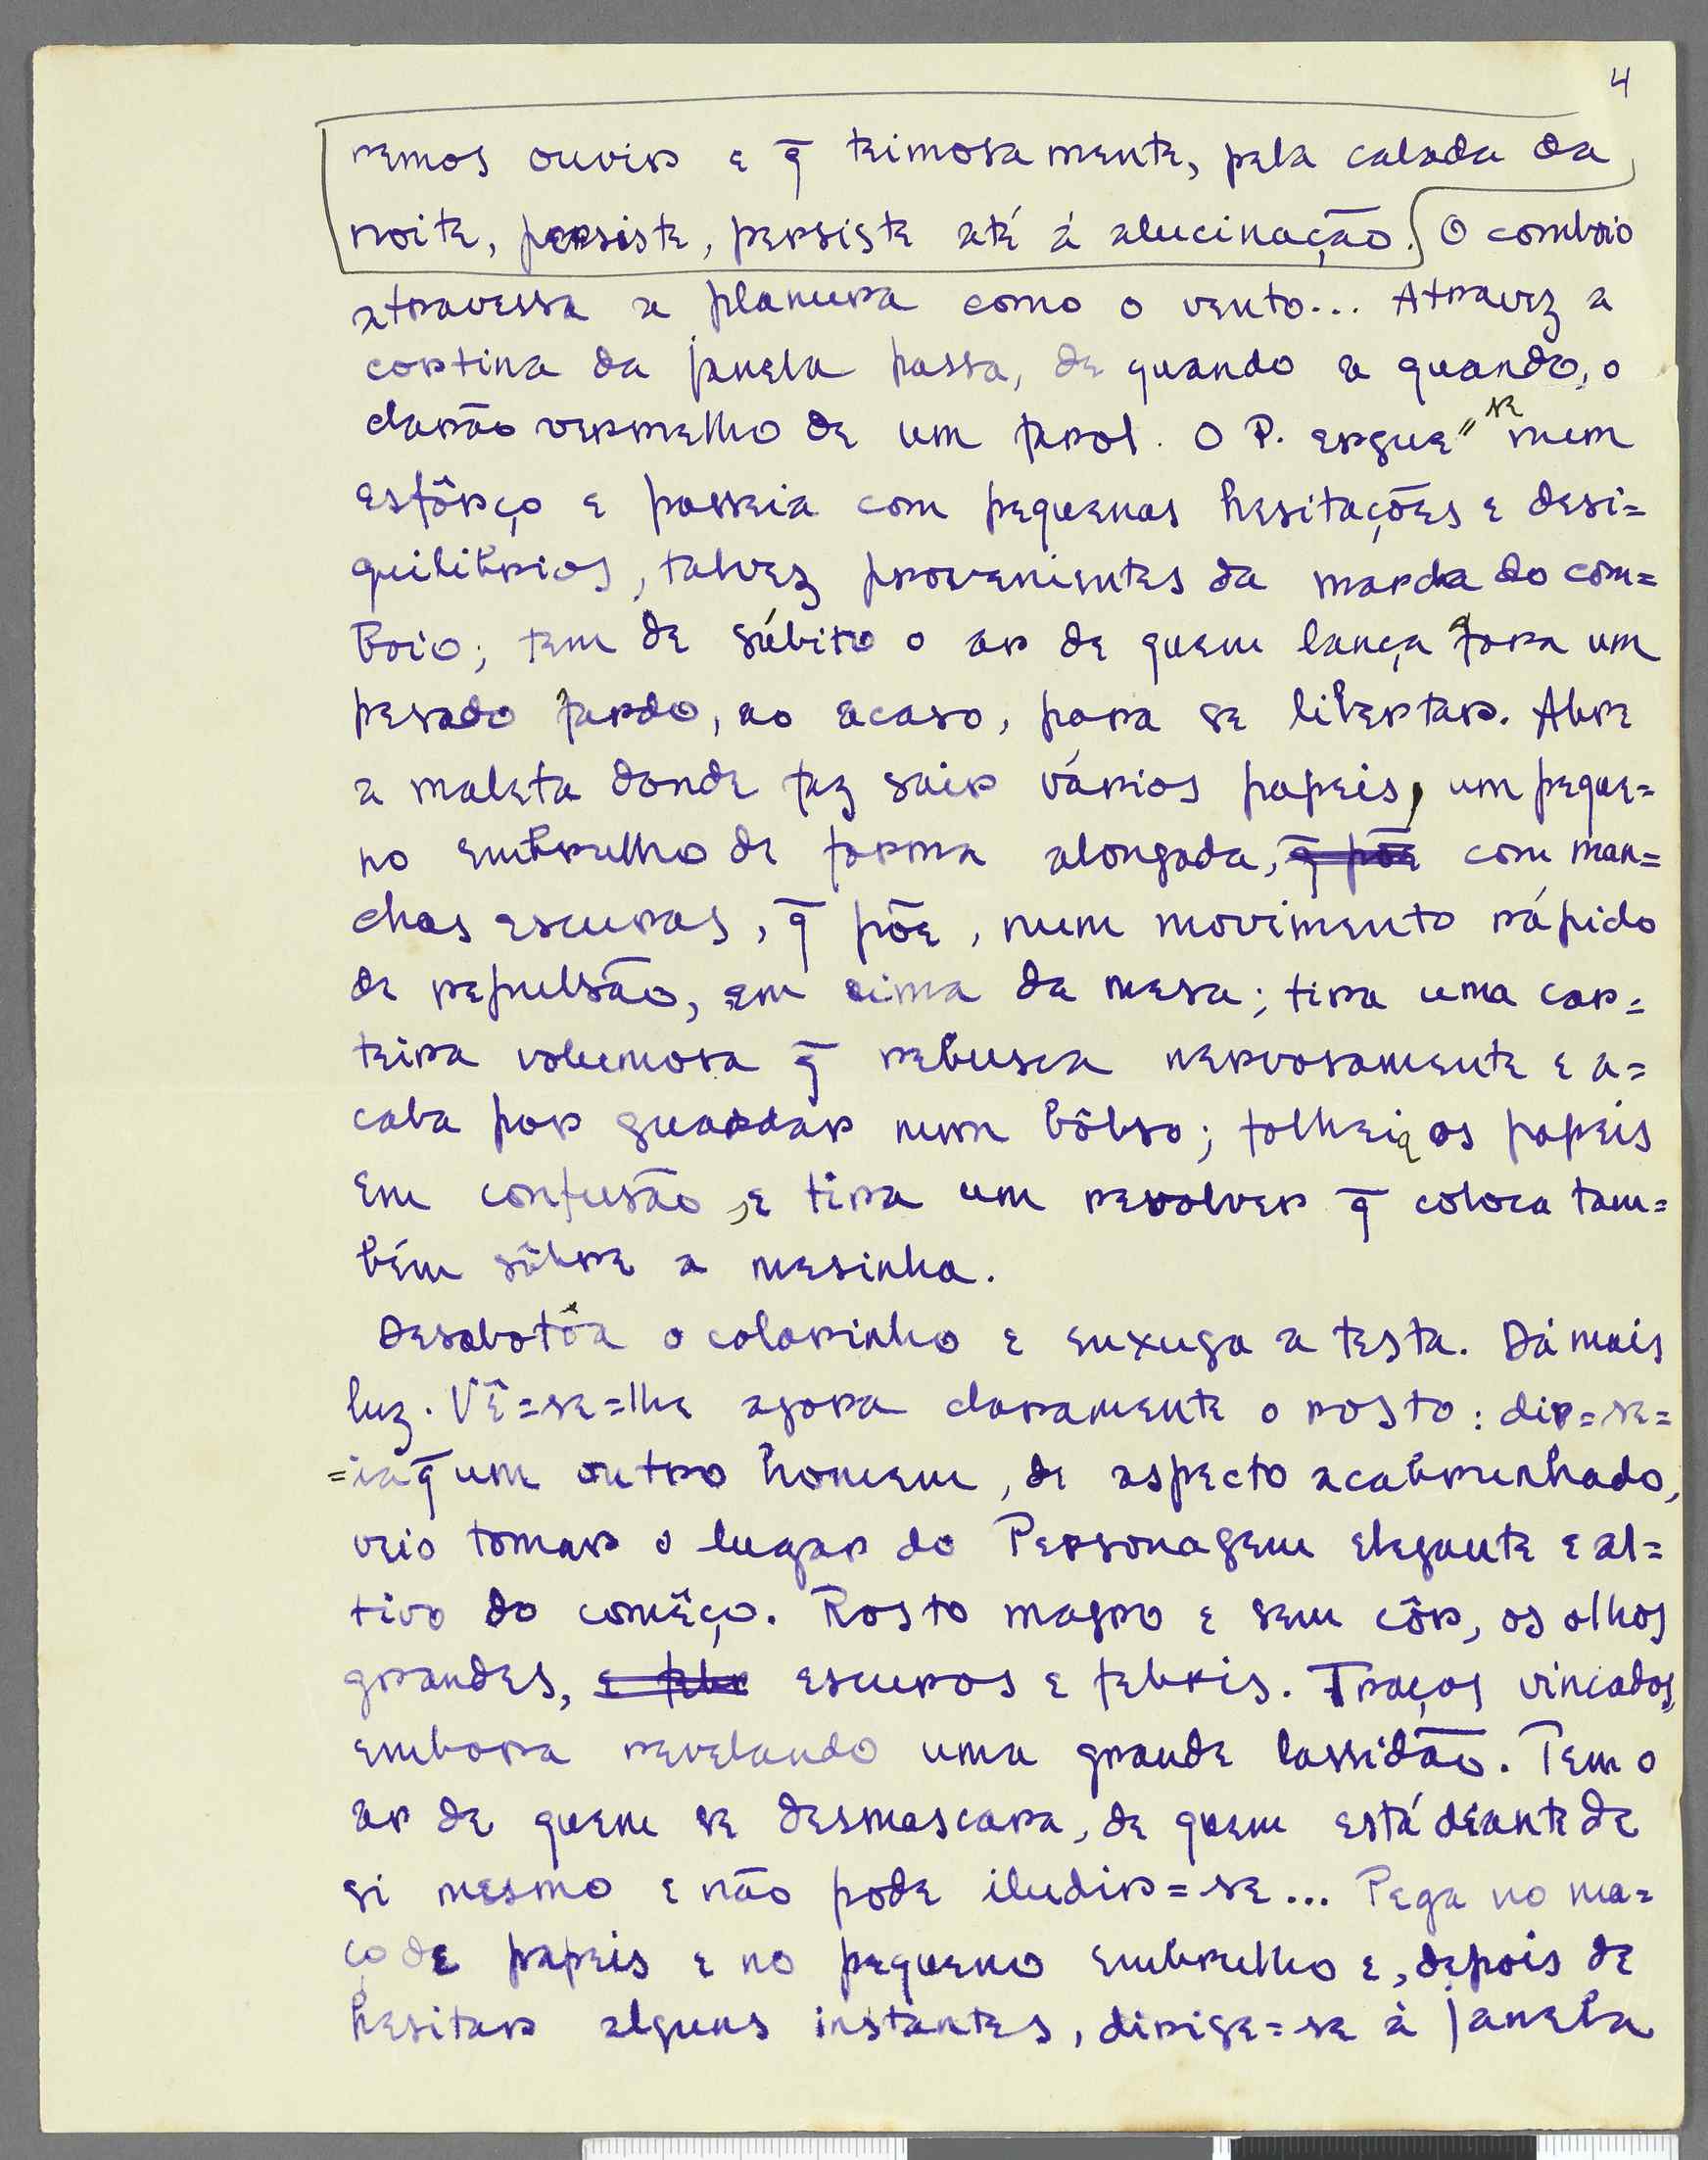 4
remos ouvir e q̄ teimosamente, pela calada da
noite, persiste, persiste até á alucinação. O comboio
atravessa a planura como o vento... Atravez a
cortina da janela passa, de quando a quando, o
clarão vermelho de um farol. O P. ergue"se num
esfôrço e passeia com pequenas hesitações e desi=
quilibrios, talvez provenientes da marcha do com=
boio; tem de súbito o ar de quem lança fora um
pesado fardo, ao acaso, para se libertar. Abre
a maleta donde faz sair vários papeis, um peque=
no embrulho de forma alongada, q̄ põe com man=
chas escuras, q̄ põe, num movimento rápido
de repulsão, em cima da mesa; tira uma car=
teira volumosa q̄ rebusca nervosamente e a=
caba por guardar num bôlso; folheia os papeis
em confusão, e tira um revolver q̄ coloca tam=
bém sôbre a mesinha.
Desabotôa o colarinho e enxuga a testa. Dá mais
luz. Vê=se=lhe agora claramente o rosto: dir=se=
=ia q̄ um outro homem, de aspecto acabrunhado,
veio tomar o lugar do Personagem elegante e al=
tivo do comêço. Rosto magro e sem côr, os olhos
grandes, e febr escuros e febris. Traços vincados,
embora revelando uma grande lassidão. Tem o
ar de quem se desmascara, de quem está deante de
si mesmo e não pode iludir=se... Pega no ma=
ço de papeis e no pequeno embrulho e, depois de
hesitar alguns instantes, dirige=se à janela